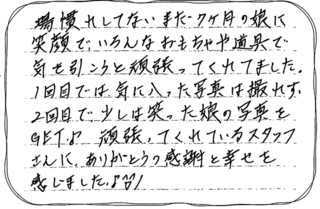 場慣れしてないまだ7ヶ月の娘に
笑顔で、いろんなおもちゃや道具で
気を引こうと頑張ってくれてました。
1回目では気に入った写真は撮れず、
2回目で少しは笑った娘の写真を
GET♪ 頑張ってくれているスタッフ
さんに、ありがとうの感謝と幸せを
感じました♪^^!